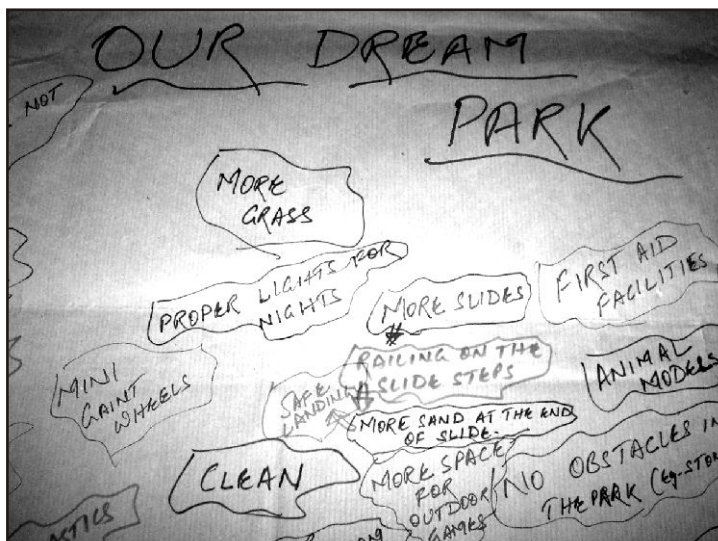 OUR DREAM
PARK
NOT
MORE
GRASS
PROPER LIGHTS FOR
NIGHTS
MORE SLIDES
FIRST AID
FACILITIES
MINI
GAINT
WHEELS
SAFE
LANDING
RAILING ON THE
SLIDE STEPS
ANIMAL
MODELS
MORE SAND AT THE END
OF SLIDE.
CLEAN
MORE SPACE
FOR
OUTDOOR
GAMES
NO OBSTACLES IN
THE PARK (Eg-STON